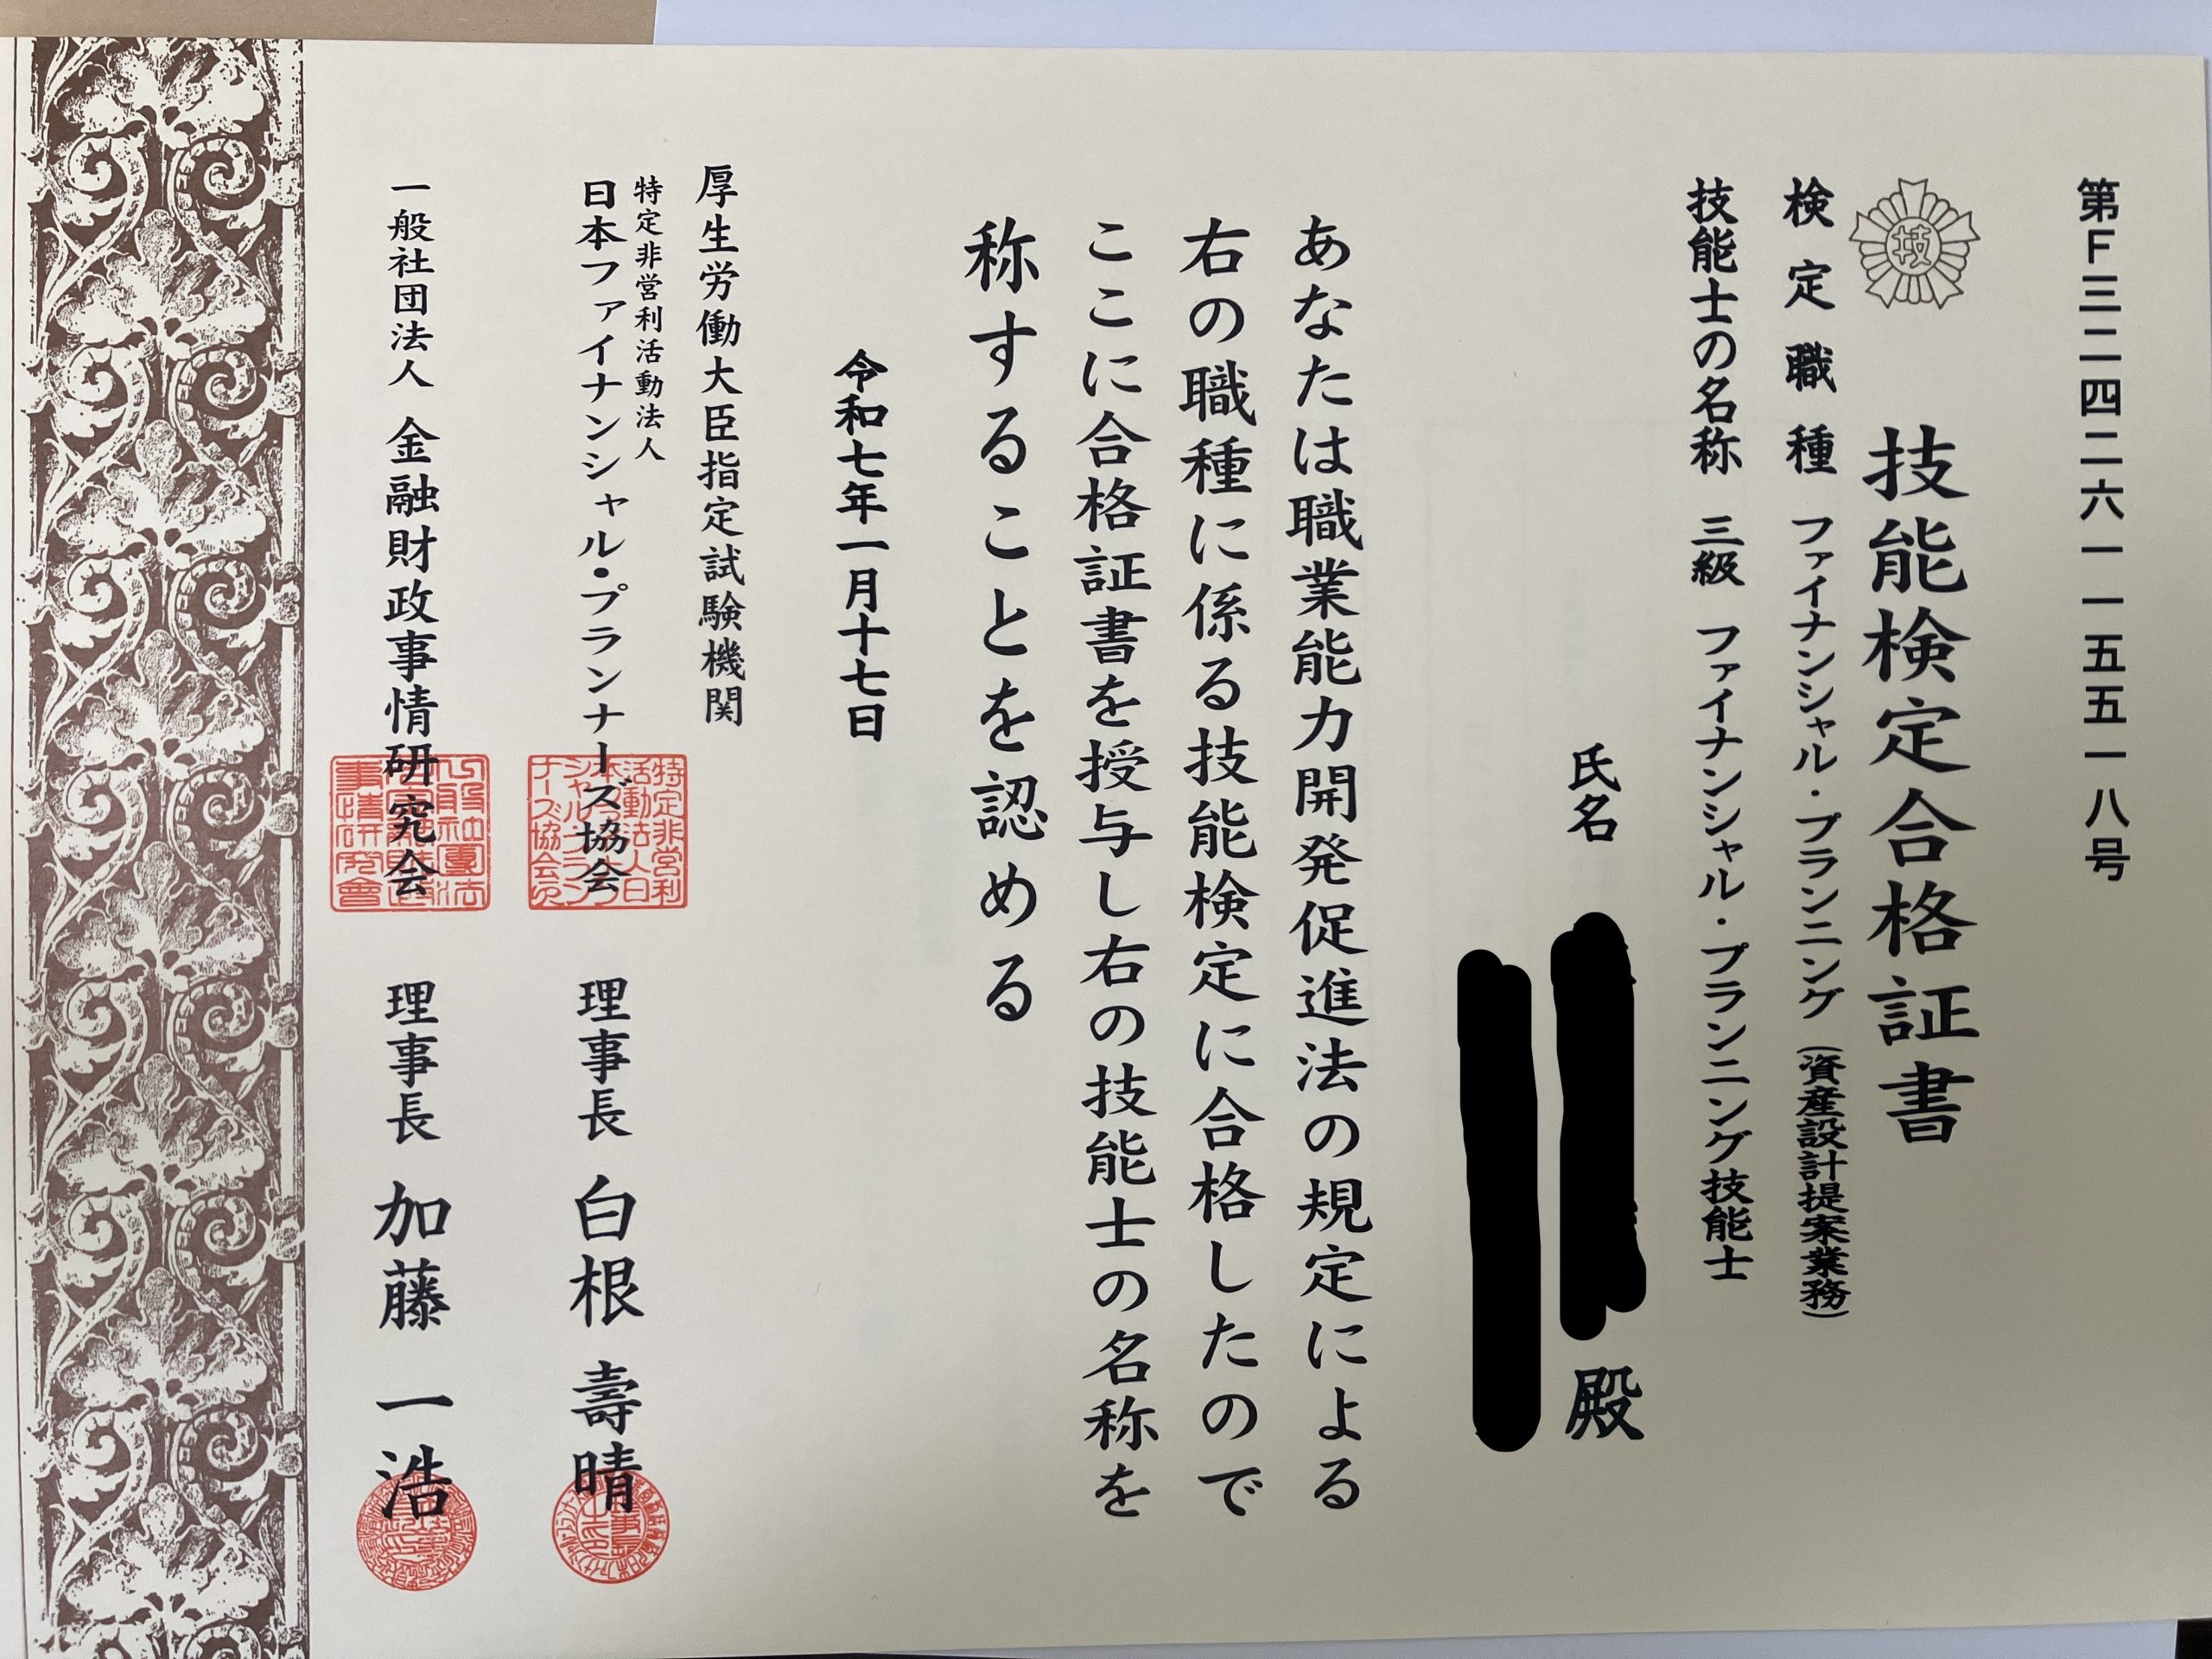 第F三二四二六一一五五一八号
技
技能検定合格証書
検定職種 ファイナンシャル・プランニング(資産設計提案業務)
技能士の名称 三級 ファイナンシャル・プランニング技能士
氏名 殿
あなたは職業能力開発促進法の規定による
右の職種に係る技能検定に合格したので
ここに合格証書を授与し右の技能士の名称を
称することを認める
令和七年一月十七日
厚生労働大臣指定試験機関
特定非営利活動法人
日本ファイナンシャル・プランナーズ協会 理事長 白根 壽晴
一般社団法人 金融財政事情研究会 理事長 加藤 一浩